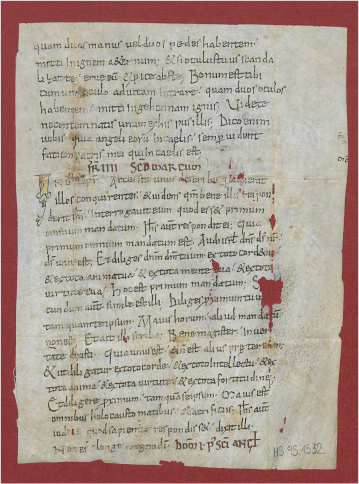 quam duas manus vel duos pedes habentem
mitti in ignem aeternum; & si oculus tuus scanda
lizat te erue eum & proice abs te; Bonum est tibi
cum uno oculo ad uitam intrare; quam duos oculos
habentem mitti in gehennam ignis; Videte
ne contemnatis unum ex his pusillis; Dico enim
uobis quia angeli eorum in caelis semper uident
faciem patris mei qui in caelis est;
FR IIII SCD MARCUM
In illo tempr Accessit unus de scribis qui audierat
illos conquirentes, & uidens qm bene illis respon
derit; interrogauit eum quod esset primum
omnium mandatum; Ihs aut respondit ei; quia
primum omnium mandatum est; Audi isrl dns ds nr
ds unus est; Et diliges dnm dm tuum ex toto corde tuo
& ex tota anima tua & ex tota mente tua & ex tota
uirtute tua; hoc est primum mandatum; Se
cundum aut simile est illi; Diliges proximum tuum
tamquam te ipsum; Maius horum aliud mandatum
non est; Et ait illi scriba; Bene magister; In ueri
tate dixisti; quia unus est & non est alius preter eum;
& ut diligatur ex toto corde & ex toto intellectu & ex
tota anima & ex tota uirtute & ex tota fortitudine;
Et diligere proximum tamquam se ipsum; Maius est
omnibus holocaustomatibus & sacrificiis; Ihs aut
sapienter respondisset dixit illi;
Non es longe a regno di; DOM I P SCI ANGLI
HS 95.1532